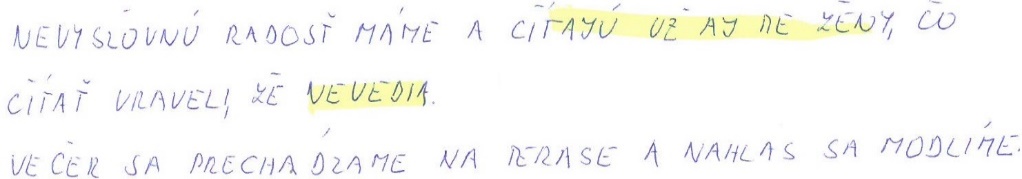 NEVYSLOVNÚ RADOSŤ MÁME A ČÍTAJÚ UŽ AJ TIE ŽENY, ČO
ČÍTAŤ VRAVELI, ŽE NEVEDIA.
VEČER SA PRECHÁDZAME NA TERASE A NAHLAS SA MODLÍME.